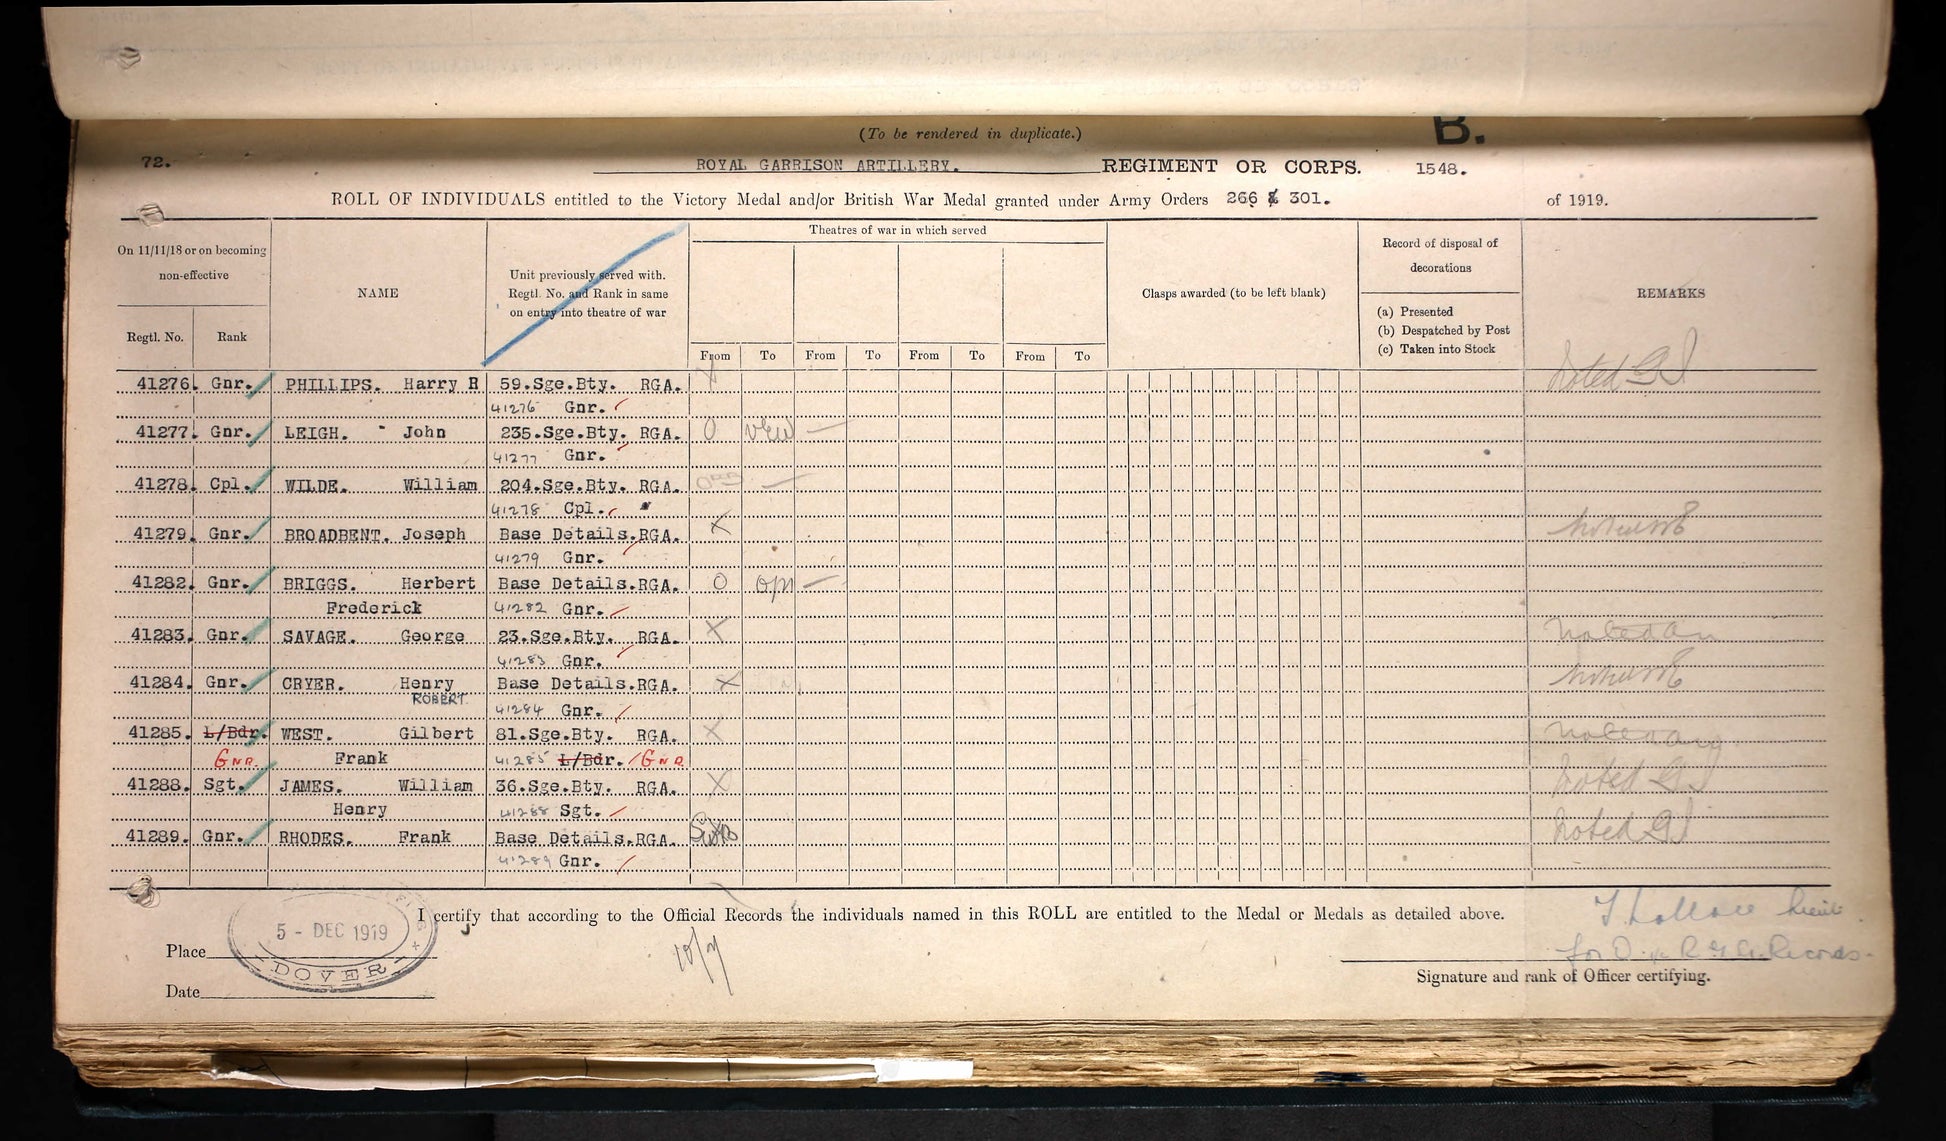 (To be rendered in duplicate.)
B.
72. ROYAL GARRISON ARTILLERY. REGIMENT OR CORPS. 1548.
ROLL OF INDIVIDUALS entitled to the Victory Medal and/or British War Medal granted under Army Orders 266 & 301. of 1919.
On 11/11/18 or on becoming non-effective
Regtl. No. Rank
NAME
Unit previously served with. Regtl. No. and Rank in same on entry into theatre of war
Theatres of war in which served
From To From To From To From To
Clasps awarded (to be left blank)
Record of disposal of decorations
(a) Presented
(b) Despatched by Post
(c) Taken into Stock
REMARKS
41276. Gnr. PHILLIPS. Harry R 59.Sge.Bty. RGA. X Noted
41276 Gnr.
41277. Gnr. LEIGH. John 235.Sge.Bty. RGA. O
41277 Gnr.
41278. Cpl. WILDE. William 204.Sge.Bty. RGA.
41278 Cpl.
41279. Gnr. BROADBENT. Joseph Base Details.RGA. X
41279 Gnr.
41282. Gnr. BRIGGS. Herbert Base Details.RGA. O
Frederick 41282 Gnr.
41283. Gnr. SAVAGE. George 23.Sge.Bty. RGA. X Noted
41283 Gnr.
41284. Gnr. CRYER. Henry Base Details.RGA. X
ROBERT 41284 Gnr.
41285. L/Bdr. WEST. Gilbert 81.Sge.Bty. RGA. X Noted
GNR. Frank 41285 L/Bdr. GNR
41288. Sgt. JAMES. William 36.Sge.Bty. RGA. X Noted
Henry 41288 Sgt.
41289. Gnr. RHODES. Frank Base Details.RGA. Noted
41289 Gnr.
I certify that according to the Official Records the individuals named in this ROLL are entitled to the Medal or Medals as detailed above.
5 - DEC 1919
DOVER
Place
Date
Lieut.
for R.G.A. Records.
Signature and rank of Officer certifying.